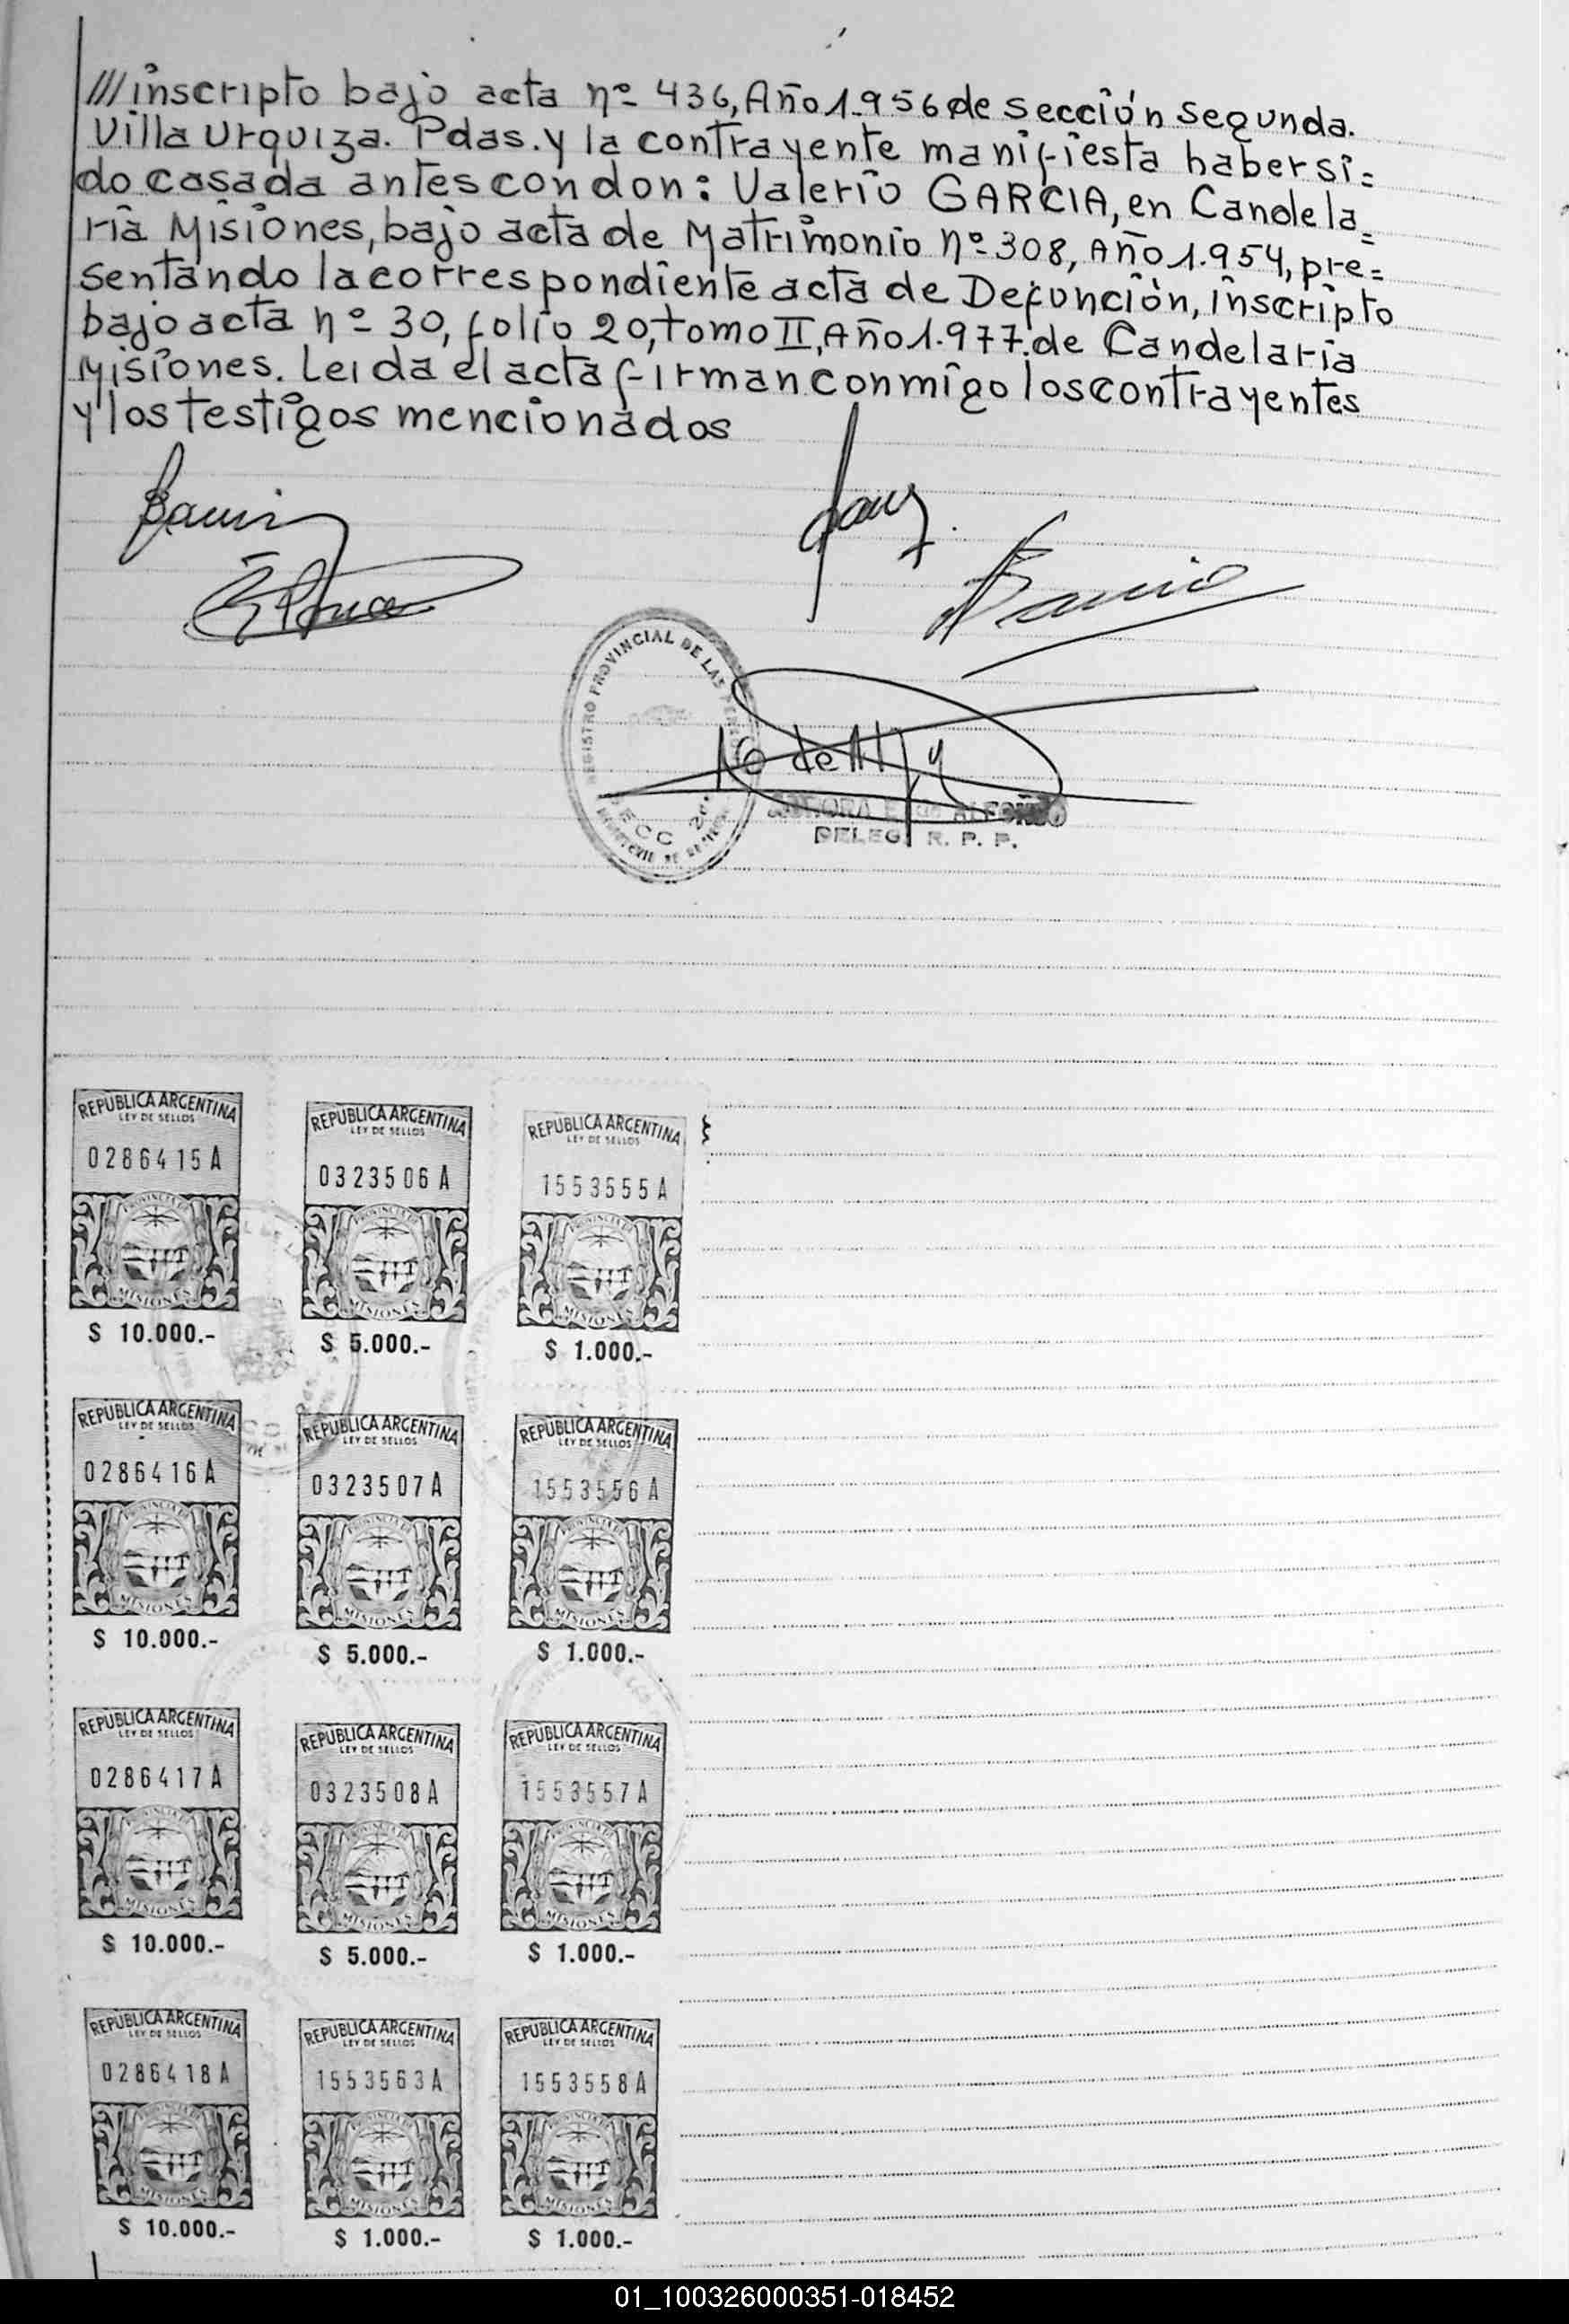 ///inscripto bajo acta nº 436, Año 1.956 de sección segunda.
Villa Urquiza. Pdas. y la contrayente manifiesta haber si=
do casada antes con don: Valerio GARCIA, en Candela=
ria Misiones, bajo acta de Matrimonio nº 308, Año 1.954, pre=
sentando la correspondiente acta de Defunción, inscripto
bajo acta nº 30, folio 20, tomo II, Año 1.977. de Candelaria
Misiones. Leida el acta firman conmigo los contrayentes
y los testigos mencionados
REGISTRO PROVINCIAL DE LAS
DELEG. R. P. P.
REPUBLICA ARGENTINA
LEY DE SELLOS
0286415 A
MISIONES
$ 10.000.-
REPUBLICA ARGENTINA
LEY DE SELLOS
0323506 A
MISIONES
$ 5.000.-
REPUBLICA ARGENTINA
LEY DE SELLOS
1553555 A
MISIONES
$ 1.000.-
REPUBLICA ARGENTINA
LEY DE SELLOS
0286416 A
MISIONES
$ 10.000.-
REPUBLICA ARGENTINA
LEY DE SELLOS
0323507 A
MISIONES
$ 5.000.-
REPUBLICA ARGENTINA
LEY DE SELLOS
1553556 A
MISIONES
$ 1.000.-
REPUBLICA ARGENTINA
LEY DE SELLOS
0286417 A
MISIONES
$ 10.000.-
REPUBLICA ARGENTINA
LEY DE SELLOS
0323508 A
MISIONES
$ 5.000.-
REPUBLICA ARGENTINA
LEY DE SELLOS
1553557 A
MISIONES
$ 1.000.-
REPUBLICA ARGENTINA
LEY DE SELLOS
0286418 A
MISIONES
$ 10.000.-
REPUBLICA ARGENTINA
LEY DE SELLOS
1553563 A
MISIONES
$ 1.000.-
REPUBLICA ARGENTINA
LEY DE SELLOS
1553558 A
MISIONES
$ 1.000.-
01_100326000351-018452